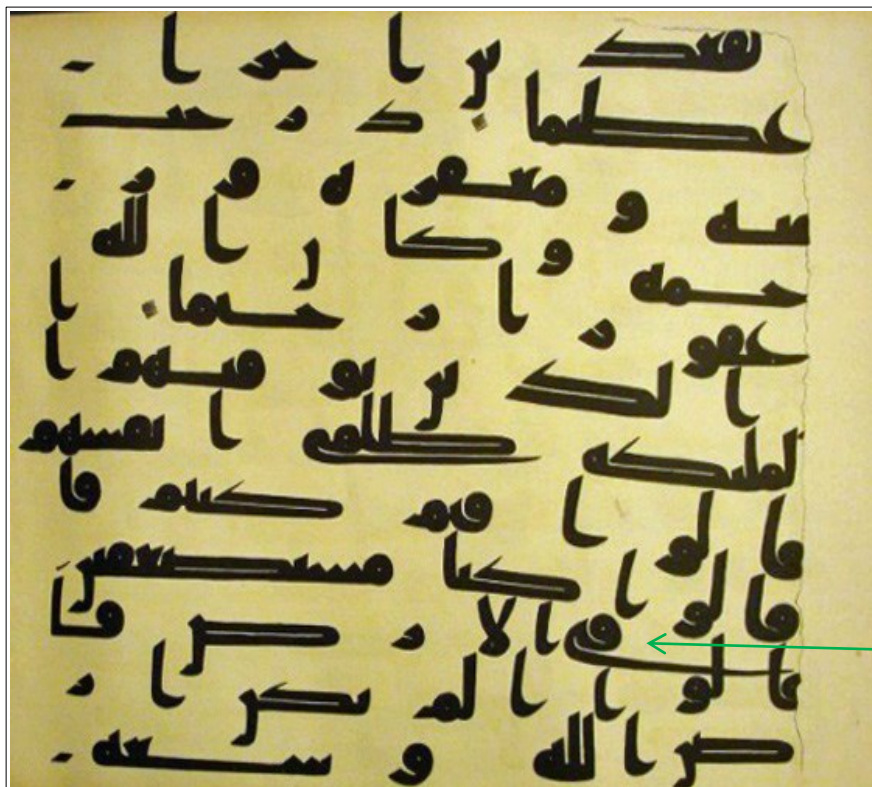 لقعد ين ا جر ا
عظيما د ر جت
منه و مغفر ه و ر
حمه و كا ن ا لله
غفو ر ا ر حيما ا
ا لذ ين تو فيهم ا
لملئكه ظلمي ا نفسهم
قا لو ا فيم كنتم قا
لو ا كنا مستضعفين
في ا لا ر ض قا
لو ا ا لم تكن ا ر
ض ا لله و سعه